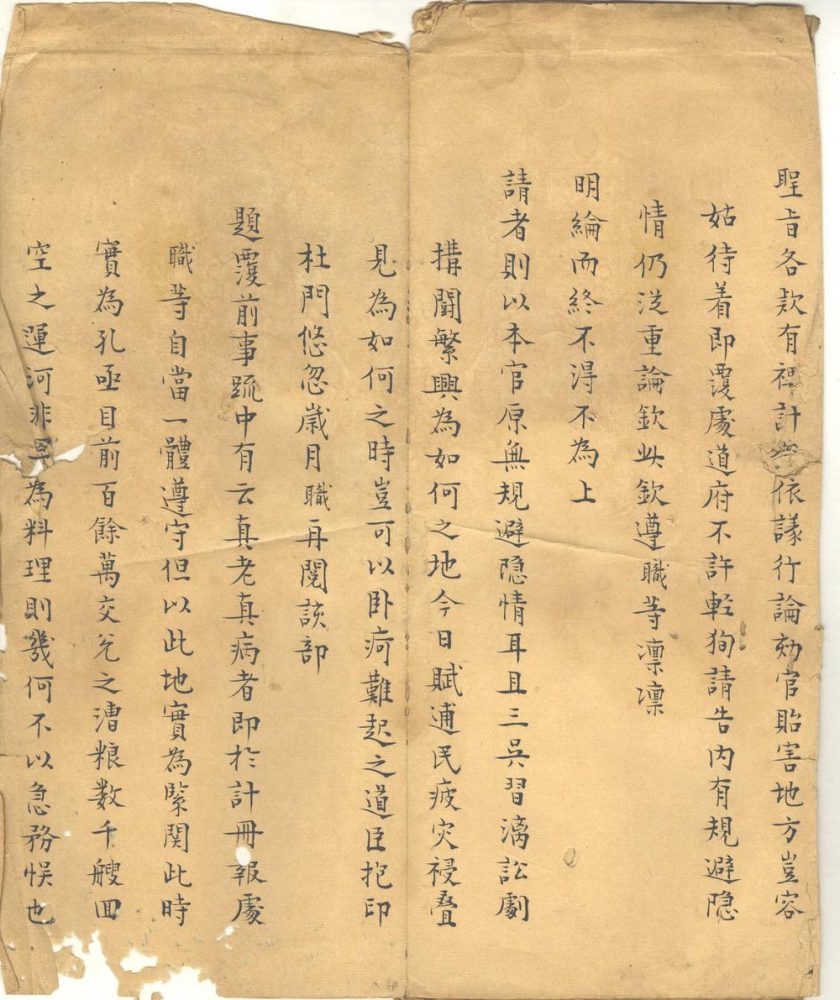 聖旨各款有裨計典依議行論劾官貽害地方豈容
姑待着即覆處道府不許輕狥請告内有規避隐
情仍従重論欽此欽遵職等凛凛
明綸而終不得不為上
請者則以本官原無規避隐情耳且三吳習漓訟劇
搆闘繁興為如何之地今日賦逋民疲灾祲疊
見為如何之時豈可以卧疴難起之道臣抱印
杜門悠忽歲月職再閱該部
題覆前事疏中有云真老真病者即於計冊報處
職等自當一體遵守但以此地實為緊関此時
實為孔亟目前百餘萬交兊之漕粮数千艘囬
空之運河非早為料理則幾何不以急務悮也